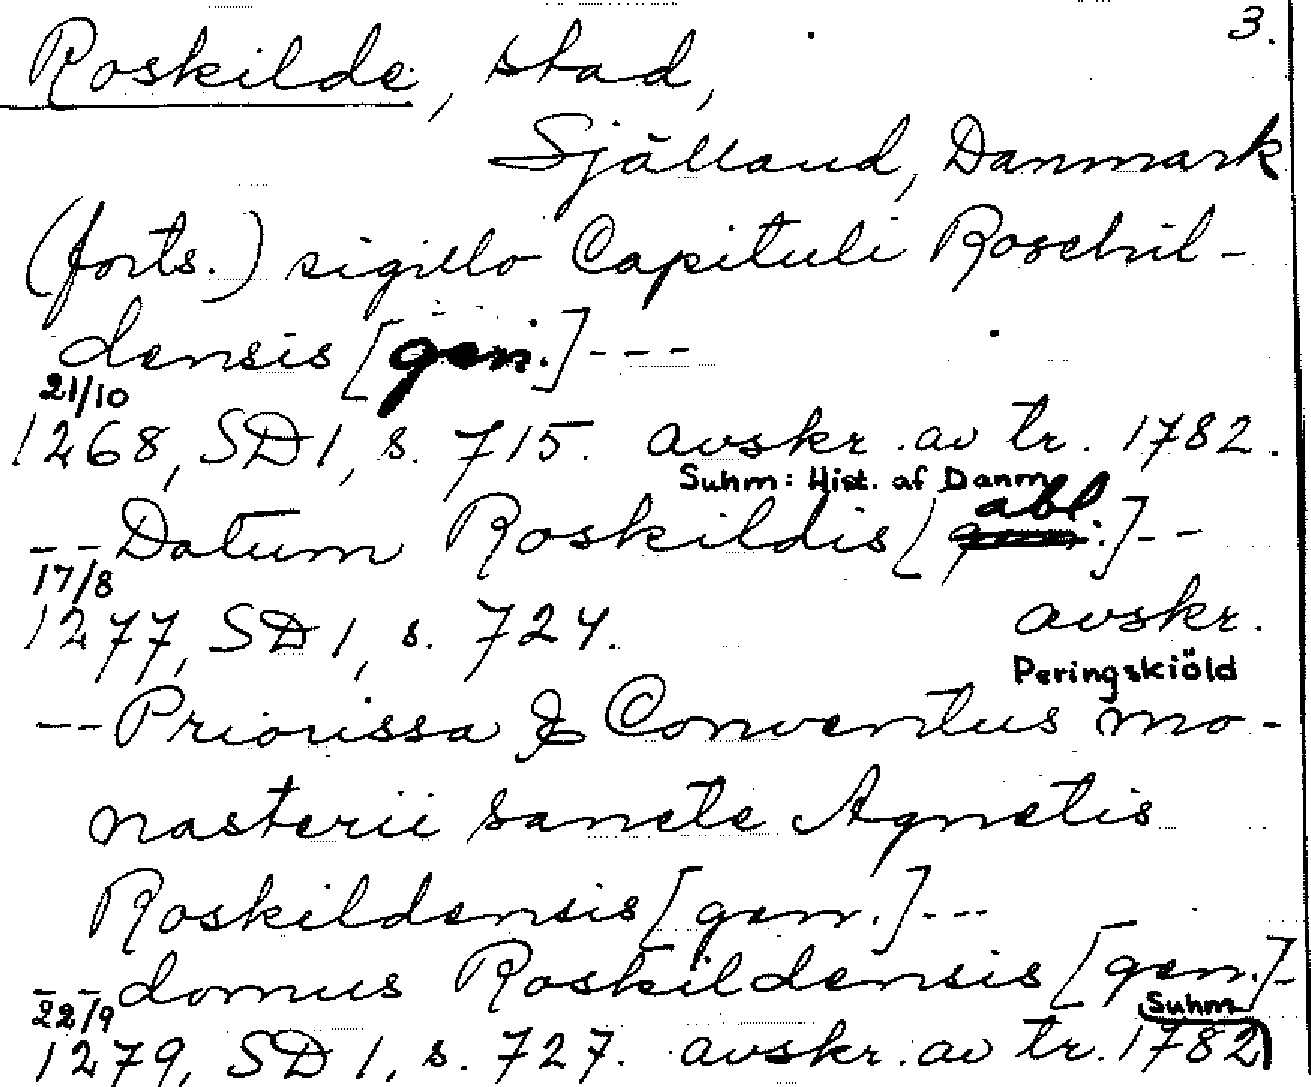 3.
Roskilde, stad,
Själland, Danmark
(forts.) sigillo Capituli Roschil-
densis [gen.]---
21/10
1268, SD 1, s. 715. avskr. av tr. 1782.
Suhm: Hist. af Danm.
--Datum Roskildis [abl.]--
17/8
1277, SD 1, s. 724. avskr.
Peringskiöld
--Priorissa & Conventus mo-
nasterii sancte Agnetis
Roskildensis [gen.]---
--domus Roskildensis [gen.]-
22/9 Suhm
1279, SD 1, s. 727. avskr. av tr. 1782